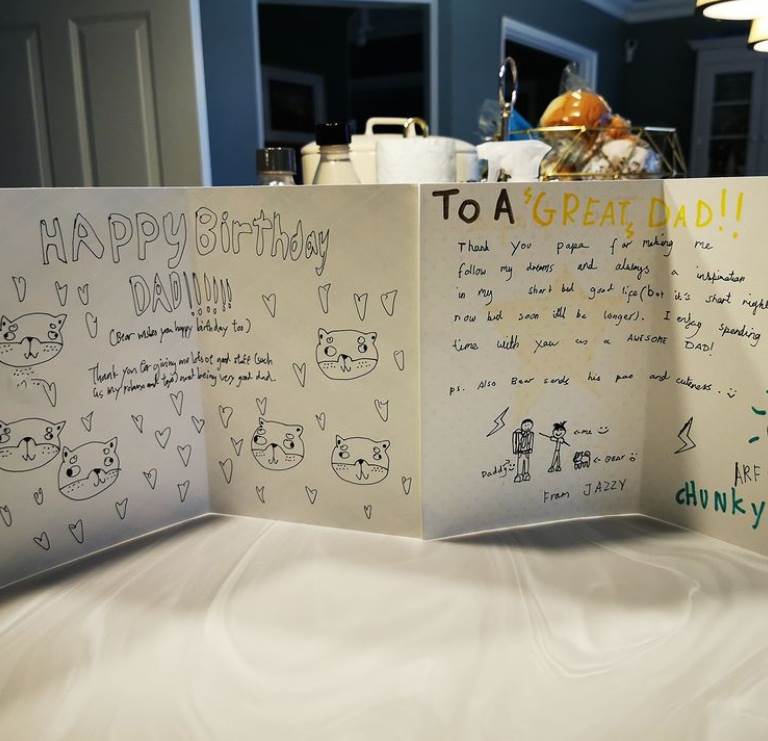 HAPPY Birthday
DAD!!!!!!
(Bear wishes you happy birthday too)
Thank you for giving me lots of good stuff (such
as my and toys) and being very good dad.
TO A GREAT DAD!!
Thank you papa for making me
follow my dreams and always a inspiration
in my short but good life (but it's short right
now but soon it'll be longer). I enjoy spending
time with you as a AWESOME DAD!
ps. Also Bear sends his paw and cuteness.
←me
Daddy
←Bear
From JAZZY
ARF
CHUNKY